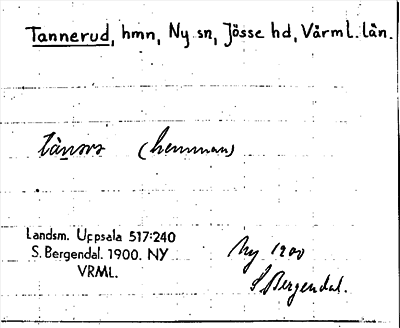 Tannerud, hmn, Ny sn, Jösse hd, Värml. län.
(hemman)
Landsm. Uppsala 517:240
S. Bergendal. 1900. NY
VRML.
Ny 1900
S Bergendal.